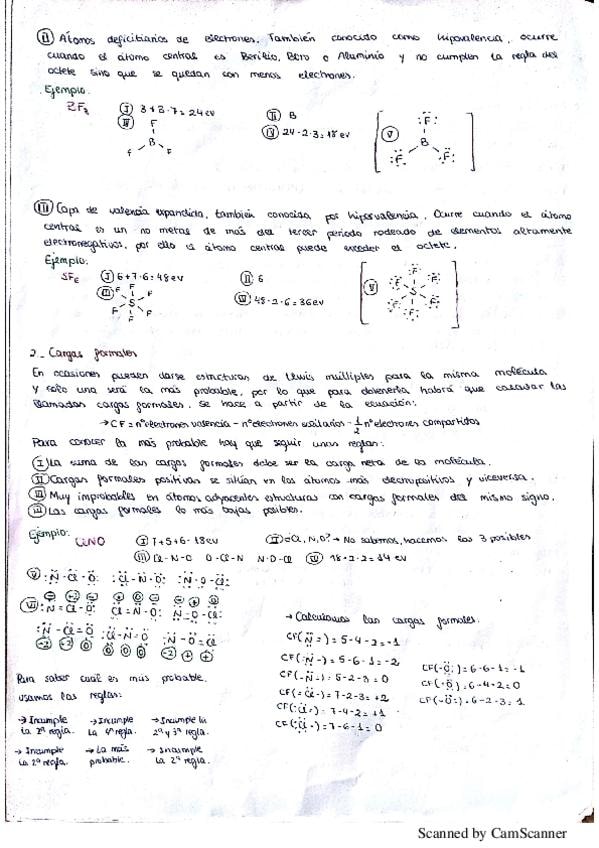 II Átomos deficitiarios de electrones. También conocido como hipovalencia, ocurre
cuando el átomo central es Berilio, Boro o Aluminio y no cumplen la regla del
octete sino que se quedan con menos electrones.
Ejemplo:
I 3+3·7=24ev
II B
III
F
B
F F
IV 24-2·3=18ev
V
F
B
F F
III Capa de valencia expandida, también conocida por hipervalencia. Ocurre cuando el átomo
central es un no metal de más del tercer periodo rodeado de elementos altamente
electronegativos, por ello el átomo central puede exceder el octete.
Ejemplo:
SF6
I 6+7·6=48ev
II 6
III
F F F
S
F F F
IV 48-2·6=36ev
V
F F F
S
F F F
2_ Cargas formales
En ocasiones pueden darse estructuras de Lewis múltiples para la misma molécula
y solo una será la más probable, por lo que para obtenerla habrá que calcular las
llamadas cargas formales. Se hace a partir de la ecuación:
→ CF = nº electrones valencia - nº electrones solitarios - 1/2 nº electrones compartidos
Para conocer la más probable hay que seguir unas reglas:
I La suma de las cargas formales debe ser la carga neta de la molécula.
II Cargas formales positivas se sitúan en los átomos más electropositivos y viceversa.
III Muy improbables en átomos adyacentes estructuras con cargas formales del mismo signo.
III Las cargas formales lo más bajas posibles.
Ejemplo:
ClNO
I 7+5+6=18ev
II ¿Cl, N, O? → No sabemos, hacemos las 3 posibles
III Cl-N-O O-Cl-N N-O-Cl
IV 18-2·2=14ev
V :N-Cl-O: :Cl-N-O: :N-O-Cl:
VI :N=Cl-O: Cl=N-O: N=O-Cl:
:N-Cl=O :Cl-N=O :N-O=Cl
-2 +2 0 0 0 0 -2 + +
→ Calculamos las cargas formales:
CF(N=)=5-4-2=-1
CF(:N-)=5-6-1=-2
CF(-N=)=5-2-3=0
CF(=Cl-)=7-2-3=+2
CF(:Cl=)=7-4-2=+1
CF(:Cl-)=7-6-1=0
CF(-O:)=6-6-1=-1
CF(=O)=6-4-2=0
CF(-O=)=6-2-3=1
Para saber cuál es más probable
usamos las reglas:
→ Incumple la 2ª regla.
→ Incumple la 4ª regla.
→ Incumple la 2ª y 3ª regla.
→ Incumple la 2ª regla.
→ La más probable.
→ Incumple la 2ª regla.
Scanned by CamScanner